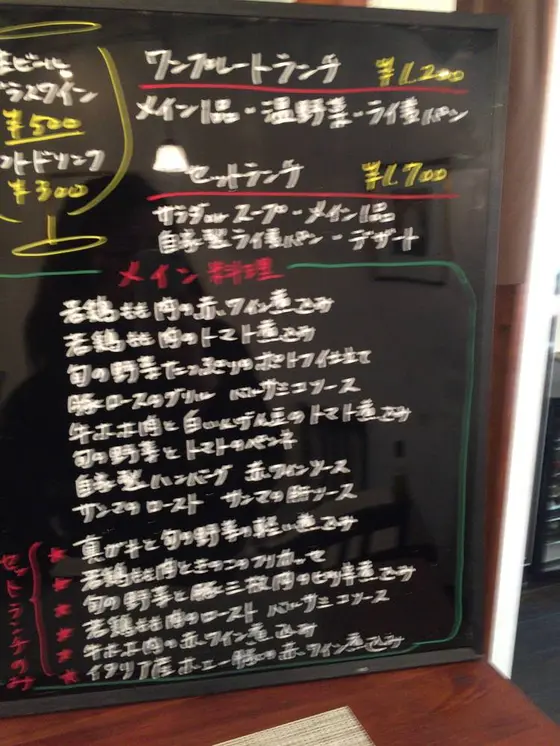 ワンプレートランチ ¥1,200
メイン1品・温野菜・ライ麦パン
グラスワイン
¥500
ソフトドリンク
¥300
セットランチ ¥1,700
サラダorスープ・メイン1品
自家製ライ麦パン・デザート
メイン料理
若鶏もも肉の赤ワイン煮込み
若鶏もも肉のトマト煮込み
旬の野菜たっぷりのポトフ仕立て
豚ロースのグリル バルサミコソース
牛ホホ肉と白いんゲん豆のトマト煮込み
旬の野菜とトマトのペンネ
自家製ハンバーグ 赤ワインソース
サンマのロースト サンマの肝ソース
セットランチのみ
★ 真ダチと旬の野菜の軽い煮込み
★ 若鶏もも肉ときのこのフリカッセ
★ 旬の野菜と豚三枚肉のピリ辛煮込み
★ 若鶏もも肉のロースト バルサミコソース
★ 牛ホホ肉の赤ワイン煮込み
★ イタリア産ホエー豚の赤ワイン煮込み